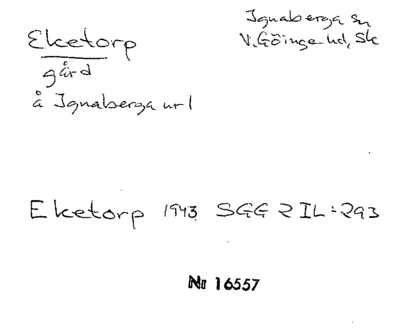 Eketorp
gård
å Ignaberga nr 1
Ignaberga sn
V. Göinge hd, Sk
Eketorp 1943 SGG 2 IL:293
Nr 16557